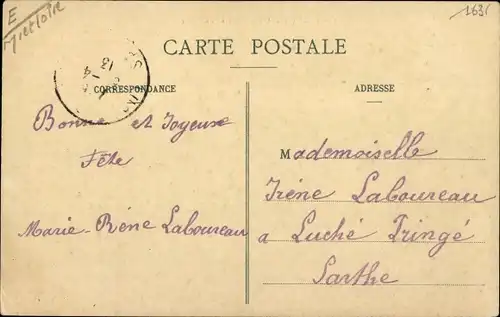 E
1631
CARTE POSTALE
CORRESPONDANCE
ADRESSE
Bonne et Joyeuse
Fête
Marie-Réne Laboureau
Mademoiselle
Irène Laboureau
a Luché Pringé
Sarthe